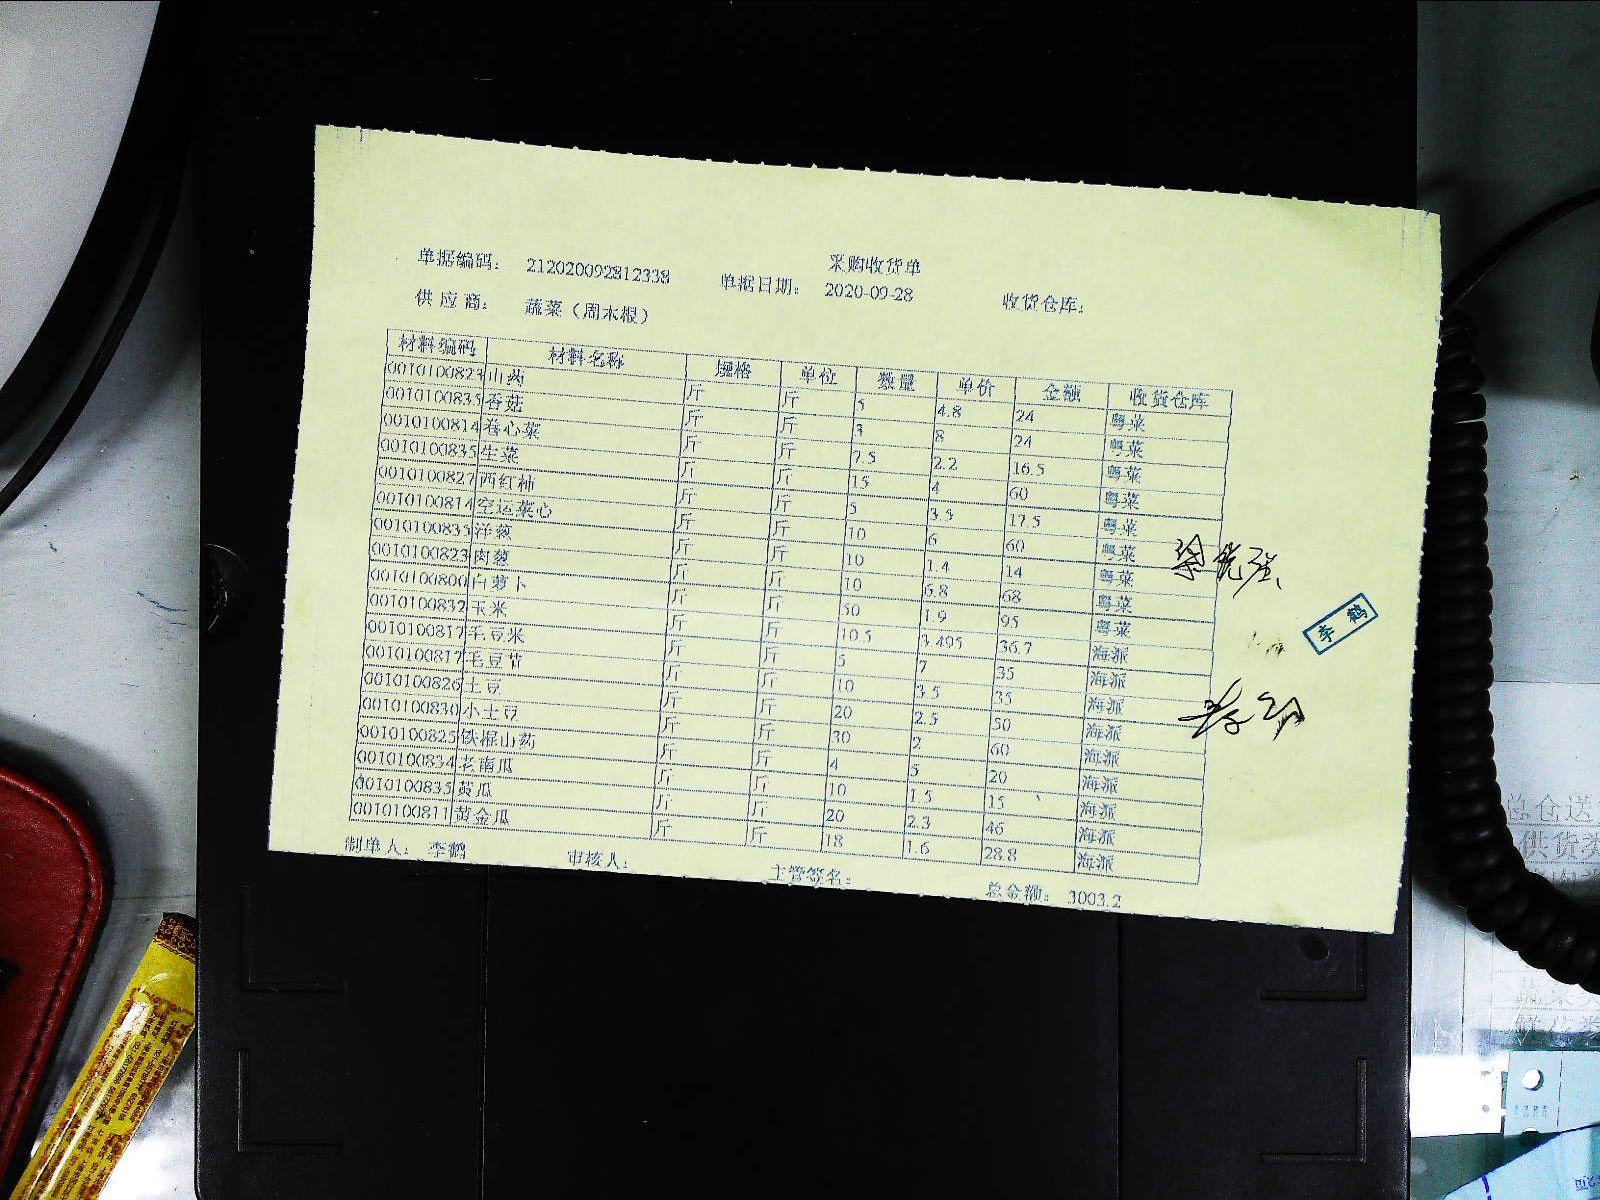 采购收货单
单据编码: 212020092812338 单据日期: 2020-09-28 收货仓库:
供应商: 蔬菜（周木根）
材料编码 材料名称 规格 单位 数量 单价 金额 收货仓库
0010100823 山药 斤 斤 5 4.8 24 粤菜
0010100835 香菇 斤 斤 3 8 24 粤菜
0010100814 卷心菜 斤 斤 7.5 2.2 16.5 粤菜
0010100835 生菜 斤 斤 15 4 60 粤菜
0010100827 西红柿 斤 斤 5 3.5 17.5 粤菜
0010100814 空运菜心 斤 斤 10 6 60 粤菜
0010100835 洋葱 斤 斤 10 1.4 14 粤菜
0010100823 肉葱 斤 斤 10 6.8 68 粤菜
0010100800 白萝卜 斤 斤 50 1.9 95 粤菜
0010100832 玉米 斤 斤 10.5 3.495 36.7 海派
0010100817 毛豆米 斤 斤 5 7 35 海派
0010100817 毛豆节 斤 斤 10 3.5 35 海派
0010100826 土豆 斤 斤 20 2.5 50 海派
0010100830 小土豆 斤 斤 30 2 60 海派
0010100825 铁棍山药 斤 斤 4 5 20 海派
0010100834 老南瓜 斤 斤 10 1.5 15 海派
0010100835 黄瓜 斤 斤 20 2.3 46 海派
0010100811 黄金瓜 斤 斤 18 1.6 28.8 海派
制单人: 李鹤 审核人: 主管签名: 总金额: 3003.2
李鹤
总仓送